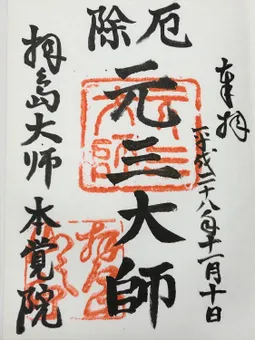 奉拝
平成二十八年十一月十日
厄除
元三大師
拝島大師
本覚院